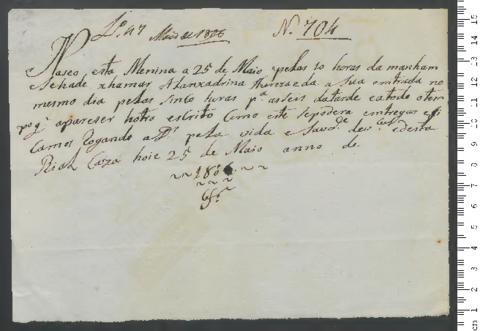 Lº 47 Maio de 1806 N. 704
Naseo esta Menina a 25 de Maio pelas 10 horas da manham
Sehade xhamar Alanxadrina Thereza da a Sua entrada no
mesmo dia pelas sinco huras pª as seis da tarde e a todo o tem
po q apareser hotro escrito Como este se podera entregar e fi
camos Rogando a Ds pela vida e Saude de desta
Rial Caza hoie 25 de Maio anno de
1806